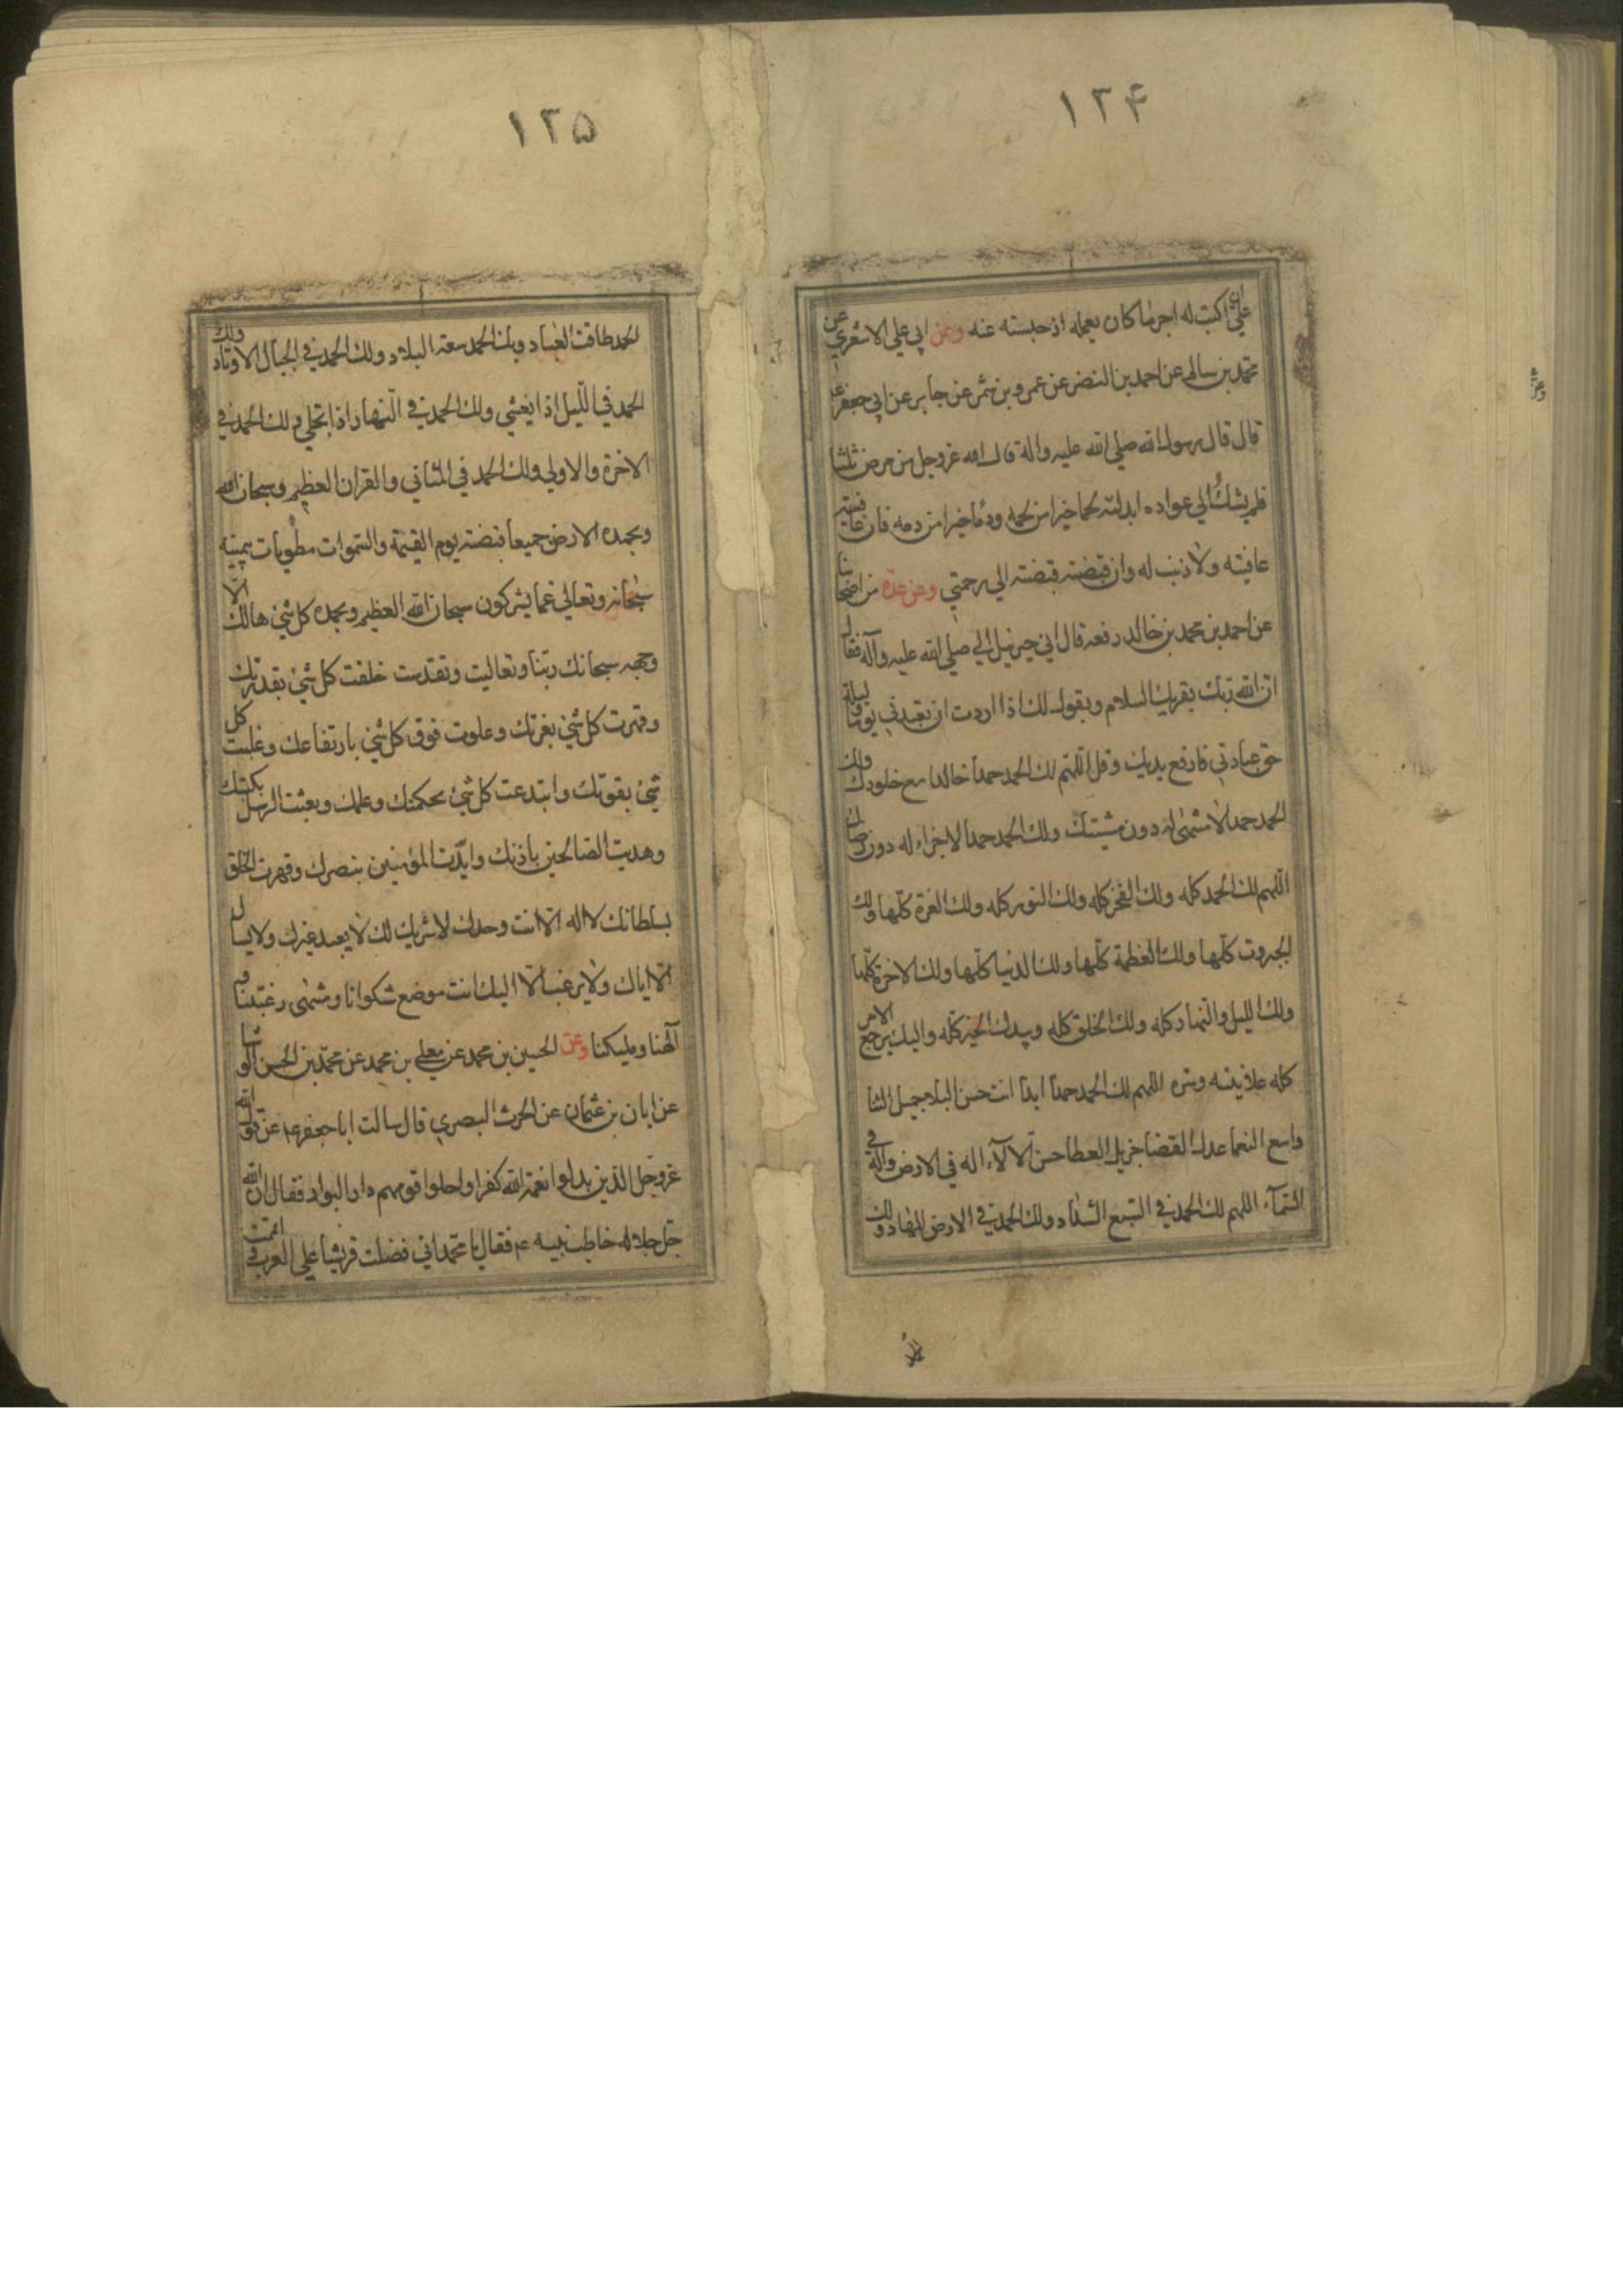 ١٣۴
علي اكتب له اجر ما كان يعمله اذ حبسته عنه وعن ابي علي الاشعري عن
محمد بن سالم عن احمد بن النضر عن عمرو بن شمر عن جابر عن ابي جعفر ع
قال قال رسول الله صلي الله عليه واله قال الله عز وجل من مرض ثلثا
فلم يشك الي عواده ابدلته لحما خيرا من لحمه ودما خيرا من دمه فان عافيته
عافيته ولا ذنب له وان قبضته قبضته الي رحمتي وعن عدة من اصحابنا
عن احمد بن محمد بن خالد رفعه قال اتي جبرئيل الي صلي الله عليه وآله فقال
ان الله ربك يقريك السلام ويقول لك اذا اردت ان تعبدني يوما وليلة
حق عبادتي فارفع يديك وقل اللهم لك الحمد حمدا خالدا مع خلودك ولك
الحمد حمدا لا منتهى له دون مشيتك ولك الحمد حمدا لا جزاء له دون رضاك
اللهم لك الحمد كله ولك الفخر كله ولك النور كله ولك العزة كلها ولك
الجبروت كلها ولك العظمة كلها ولك الدنيا كلها ولك الاخرة كلها
ولك الليل والنهار كله ولك الخلق كله وبيدك الخير كله واليك يرجع الامر
كله علانيته وسره اللهم لك الحمد حمدا ابدا انت حسن البلا جميل الثنا
واسع النعما عدل القضا جزيل العطا حسن الآلاء اله في الارض واله في
السماء اللهم لك الحمد في السبع الشداد ولك الحمد في الارض المهاد ولك
١٣۵
الحمد طاقت العباد ولك الحمد سعة البلاد ولك الحمد في الجبال الاوتاد ولك
الحمد في الليل اذا يغشي ولك الحمد في النهار اذا تجلي ولك الحمد في
الاخرة والاولي ولك الحمد في المثاني والقران العظيم وسبحان الله
وبحمده الارض جميعا قبضته يوم القيمة والسموات مطويات بيمينه
سبحانه وتعالي عما يشركون سبحان الله العظيم وبحمده كل شيئ هالك الا
وجهه سبحانك ربنا وتعاليت وتقدست خلقت كل شيئ بقدرتك
وقهرت كل شيئ بعزتك وعلوت فوق كل شيئ بارتفاعك وغلبت كل
شيئ بقوتك وابتدعت كل شيئ بحكمتك وعلمك وبعثت الرسل بكتبك
وهديت الصالحين باذنك وايدت المؤمنين بنصرك وقهرت الخلق
بسلطانك لا اله الا انت وحدك لا شريك لك لا يعبد غيرك ولا يسال
الا اياك ولا يرغب الا اليك انت موضع شكوانا ومنتهى رغبتنا و
آلهنا ومليكنا وعن الحسين بن محمد عن معلى بن محمد عن محمد بن الحسن الوشا
عن ابان بن عثمان عن الحرث البصري قال سالت ابا جعفر ع عن قول الله
عز وجل الذين بدلوا نعمة الله كفرا واحلوا قومهم دار البوار فقال ان الله
جل جلاله خاطب نبيه ع فقال يا محمد اني فضلت قريشا علي العرب واتممت